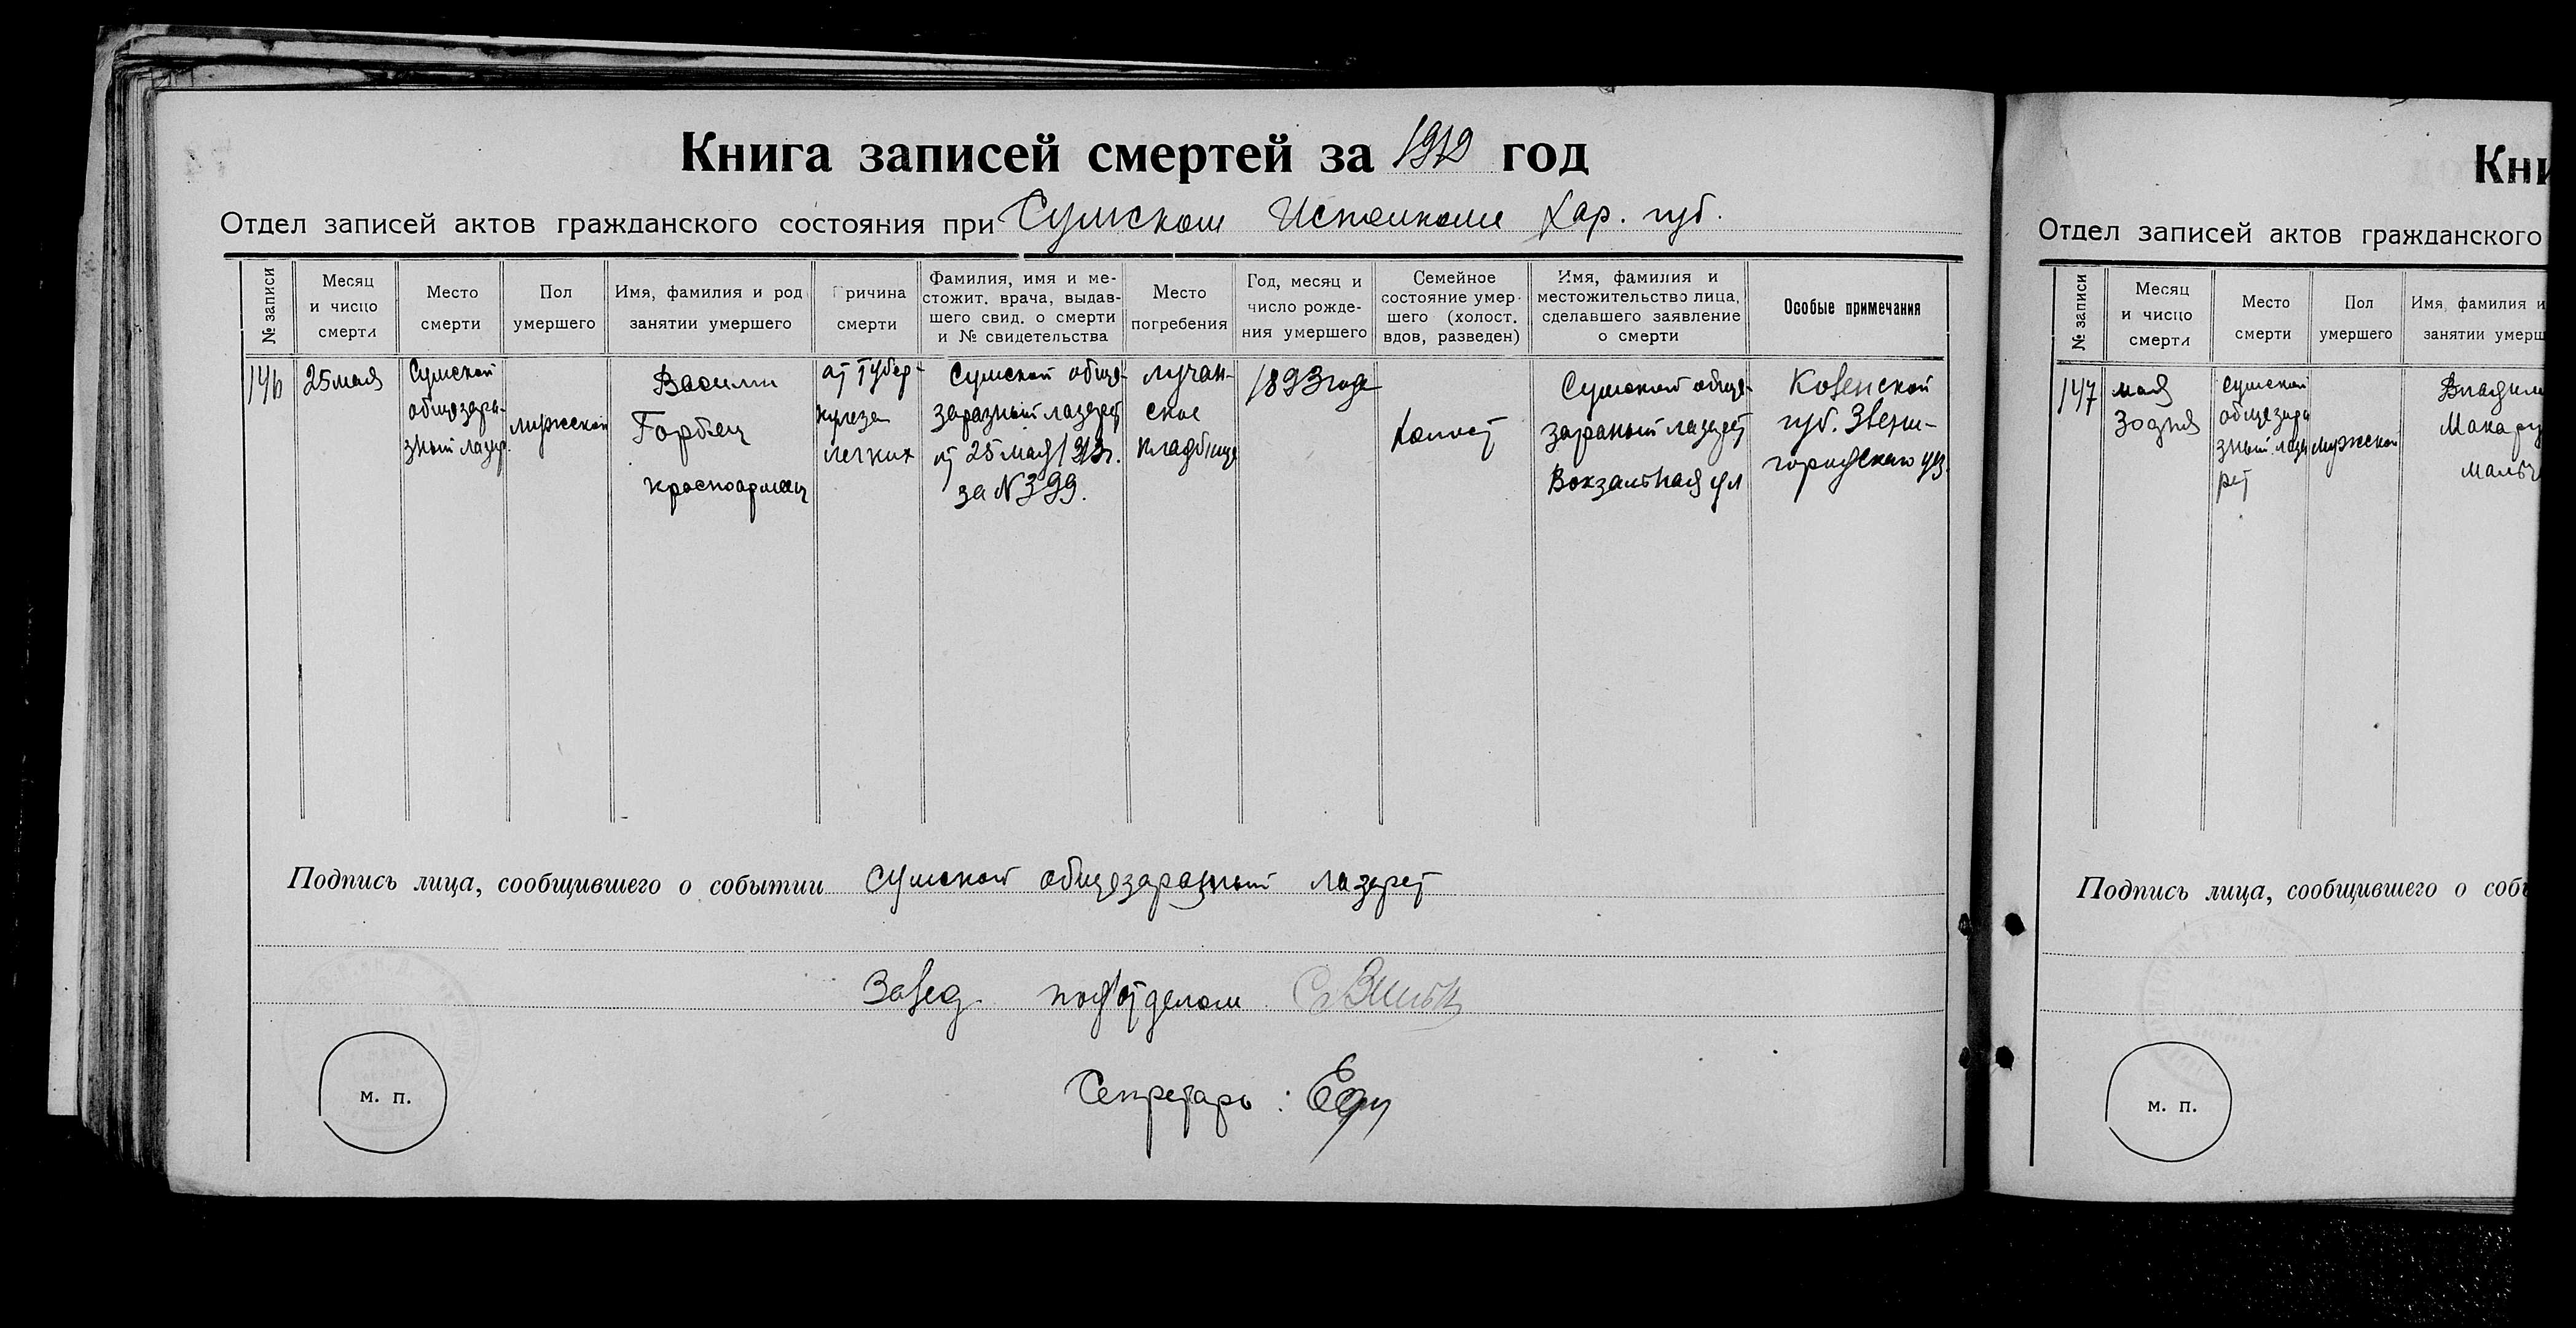 Книга записей смертей за 1919 год
Отдел записей актов гражданского состояния при Сумском Исполкоме Хар. губ.
№ записи
Месяц
и число
смерти
Место
смерти
Пол
умершего
Имя, фамилия и род
занятии умершего
Причина
смерти
Фамилия, имя и ме-
стожит. врача, выдав-
шего свид. о смерти
и № свидетельства
Место
погребения
Год, месяц и
число рожде-
ния умершего
Семейное
состояние умер-
шего (холост.
вдов, разведен)
Имя, фамилия и
местожительство лица,
сделавшего заявление
о смерти
Особые примечания
146
25 мая
Сумской
общезара-
зный лазар.
мужской
Васили
Горбач
красноармеец
от тубер-
кулеза
легких
Сумской обще-
заразный лазарет
от 25 мая 1919г.
за № 399.
Лучан-
ское
кладбище
1893 года
Холост
Сумской обще-
заразный лазарет
Вокзальная ул
Ковенской
губ. Звени-
городского уез.
Подпись лица, сообщившего о событии Сумской общезаразный лазарет
Завед. подотделом
Секретарь:
м. п.
Кни
Отдел записей актов гражданского
№ записи
Месяц
и число
смерти
Место
смерти
Пол
умершего
Имя, фамилия и
занятии умерш
147
мая
30 дня
Сумской
общезара
зный лаза
рет
Мужской
Владим
Макар
мальч
Подпись лица, сообщившего о собы
м. п.